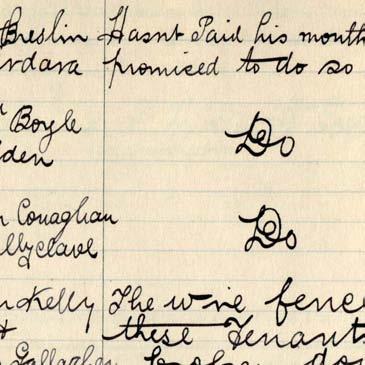 Breslin Hasnt Paid his month
rdara promised to do so
Boyle
Do
den
n Conaghan
Do
llyclave
Kelly The wire fence
these Tenants
Gallagher